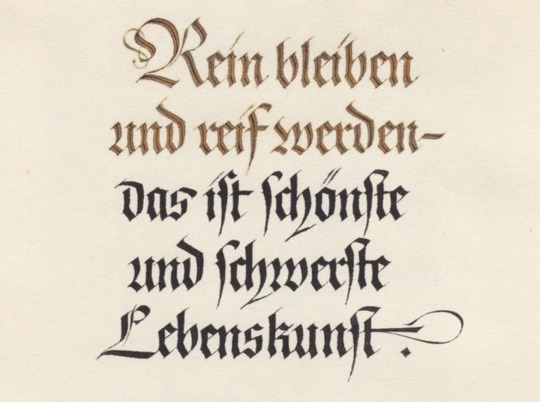 Rein bleiben
und reif werden-
das ist schönste
und schwerste
Lebenskunst.